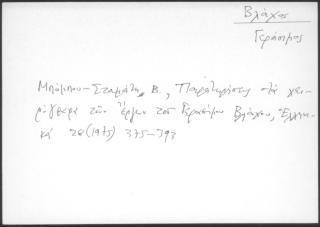 Βλάχος
Γεράσιμος
Μπόμπου-Σταμάτη, Β., Παρατηρήσεις στά χει-
ρόγραφα τῶν Ἔργων τοῦ Γερασίμου Βλάχου, Ἑλληνι-
κά 28 (1975) 375-397